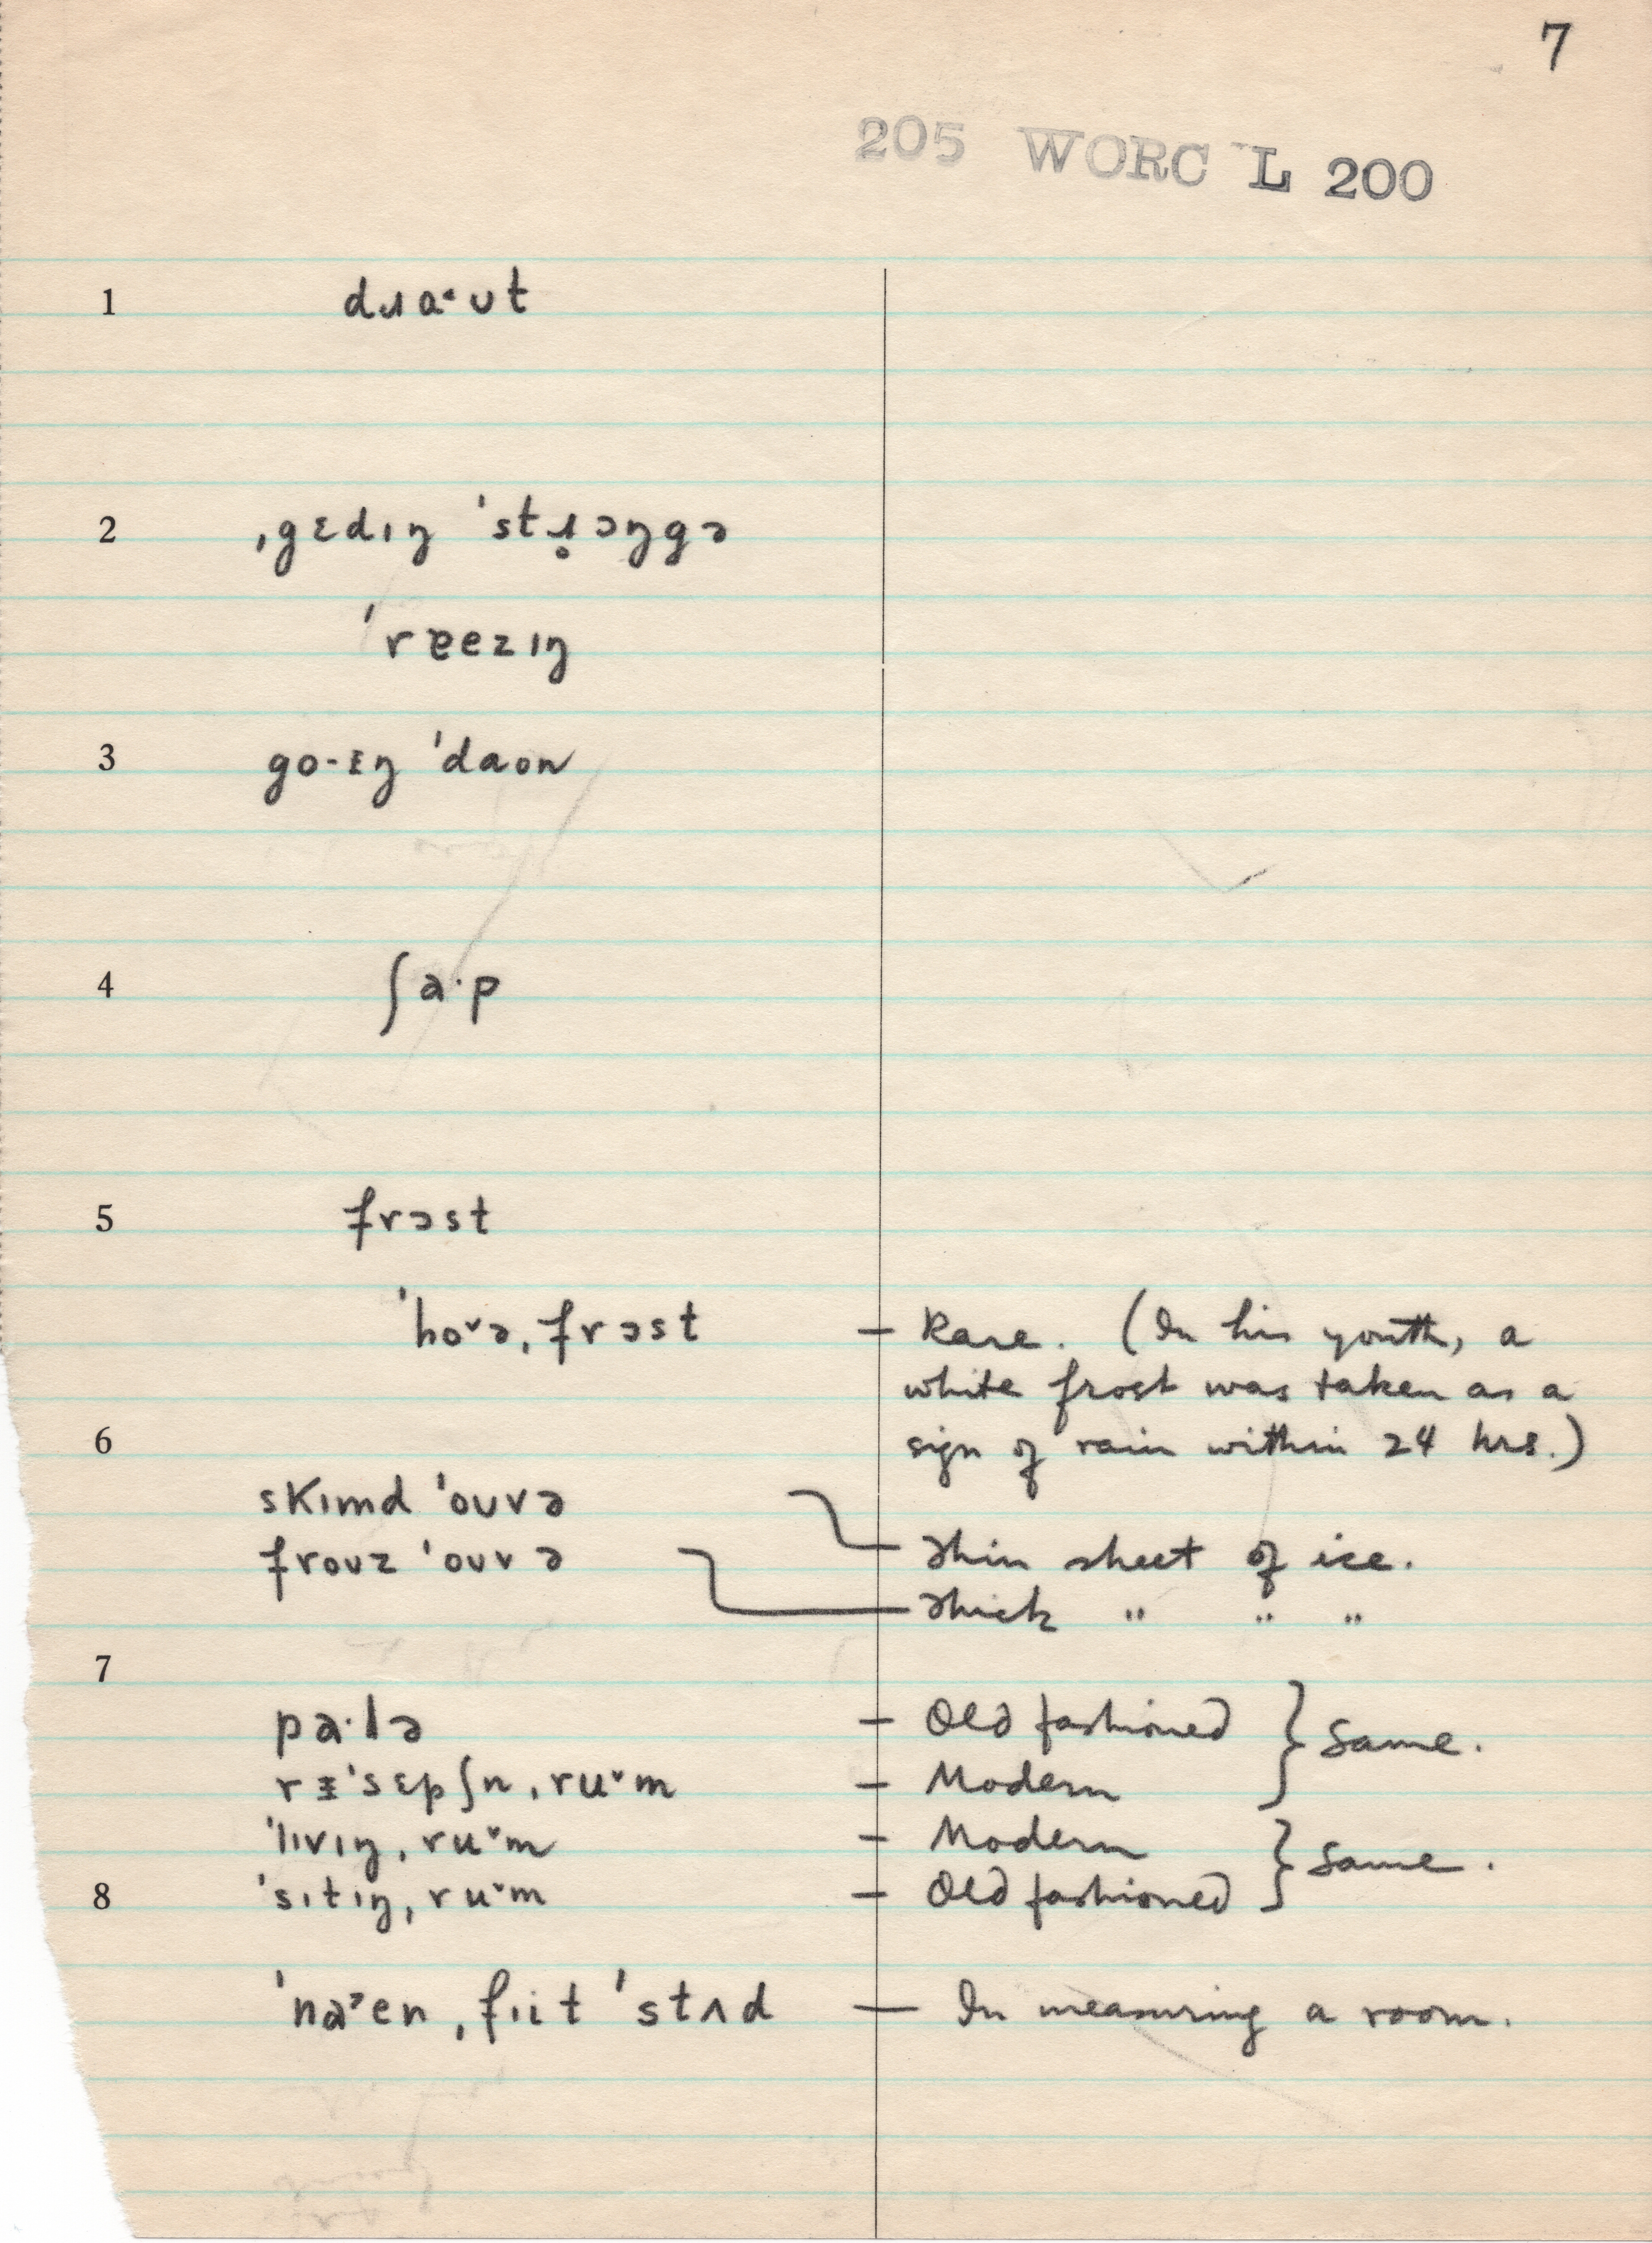 7
205 WORC L 200
1 dɹa˂ʊt
2 ˌgɛdɪŋ ˈstɹ̥ɔŋgə
ˈrɐezɪŋ
3 go-ᵻŋ ˈdaon
4 ʃaˑp
5 frɔst
ˈhoˇə, frɔst — Rare. (In his youth, a
white frost was taken as a
6 sign of rain within 24 hrs.)
skɪmd ˈoʊvə
frouz ˈoʊvə Thin sheet of ice.
Thick " " "
7
paˑlə — Old fashioned } Same.
rᵻˈsɛpʃn, ruˇm — Modern
ˈlɪvɪŋ, ruˇm — Modern } Same.
8 ˈsɪtɪŋ, ruˇm — Old fashioned
ˈnaˀen ˌfɪit ˈstʌd — In measuring a room.